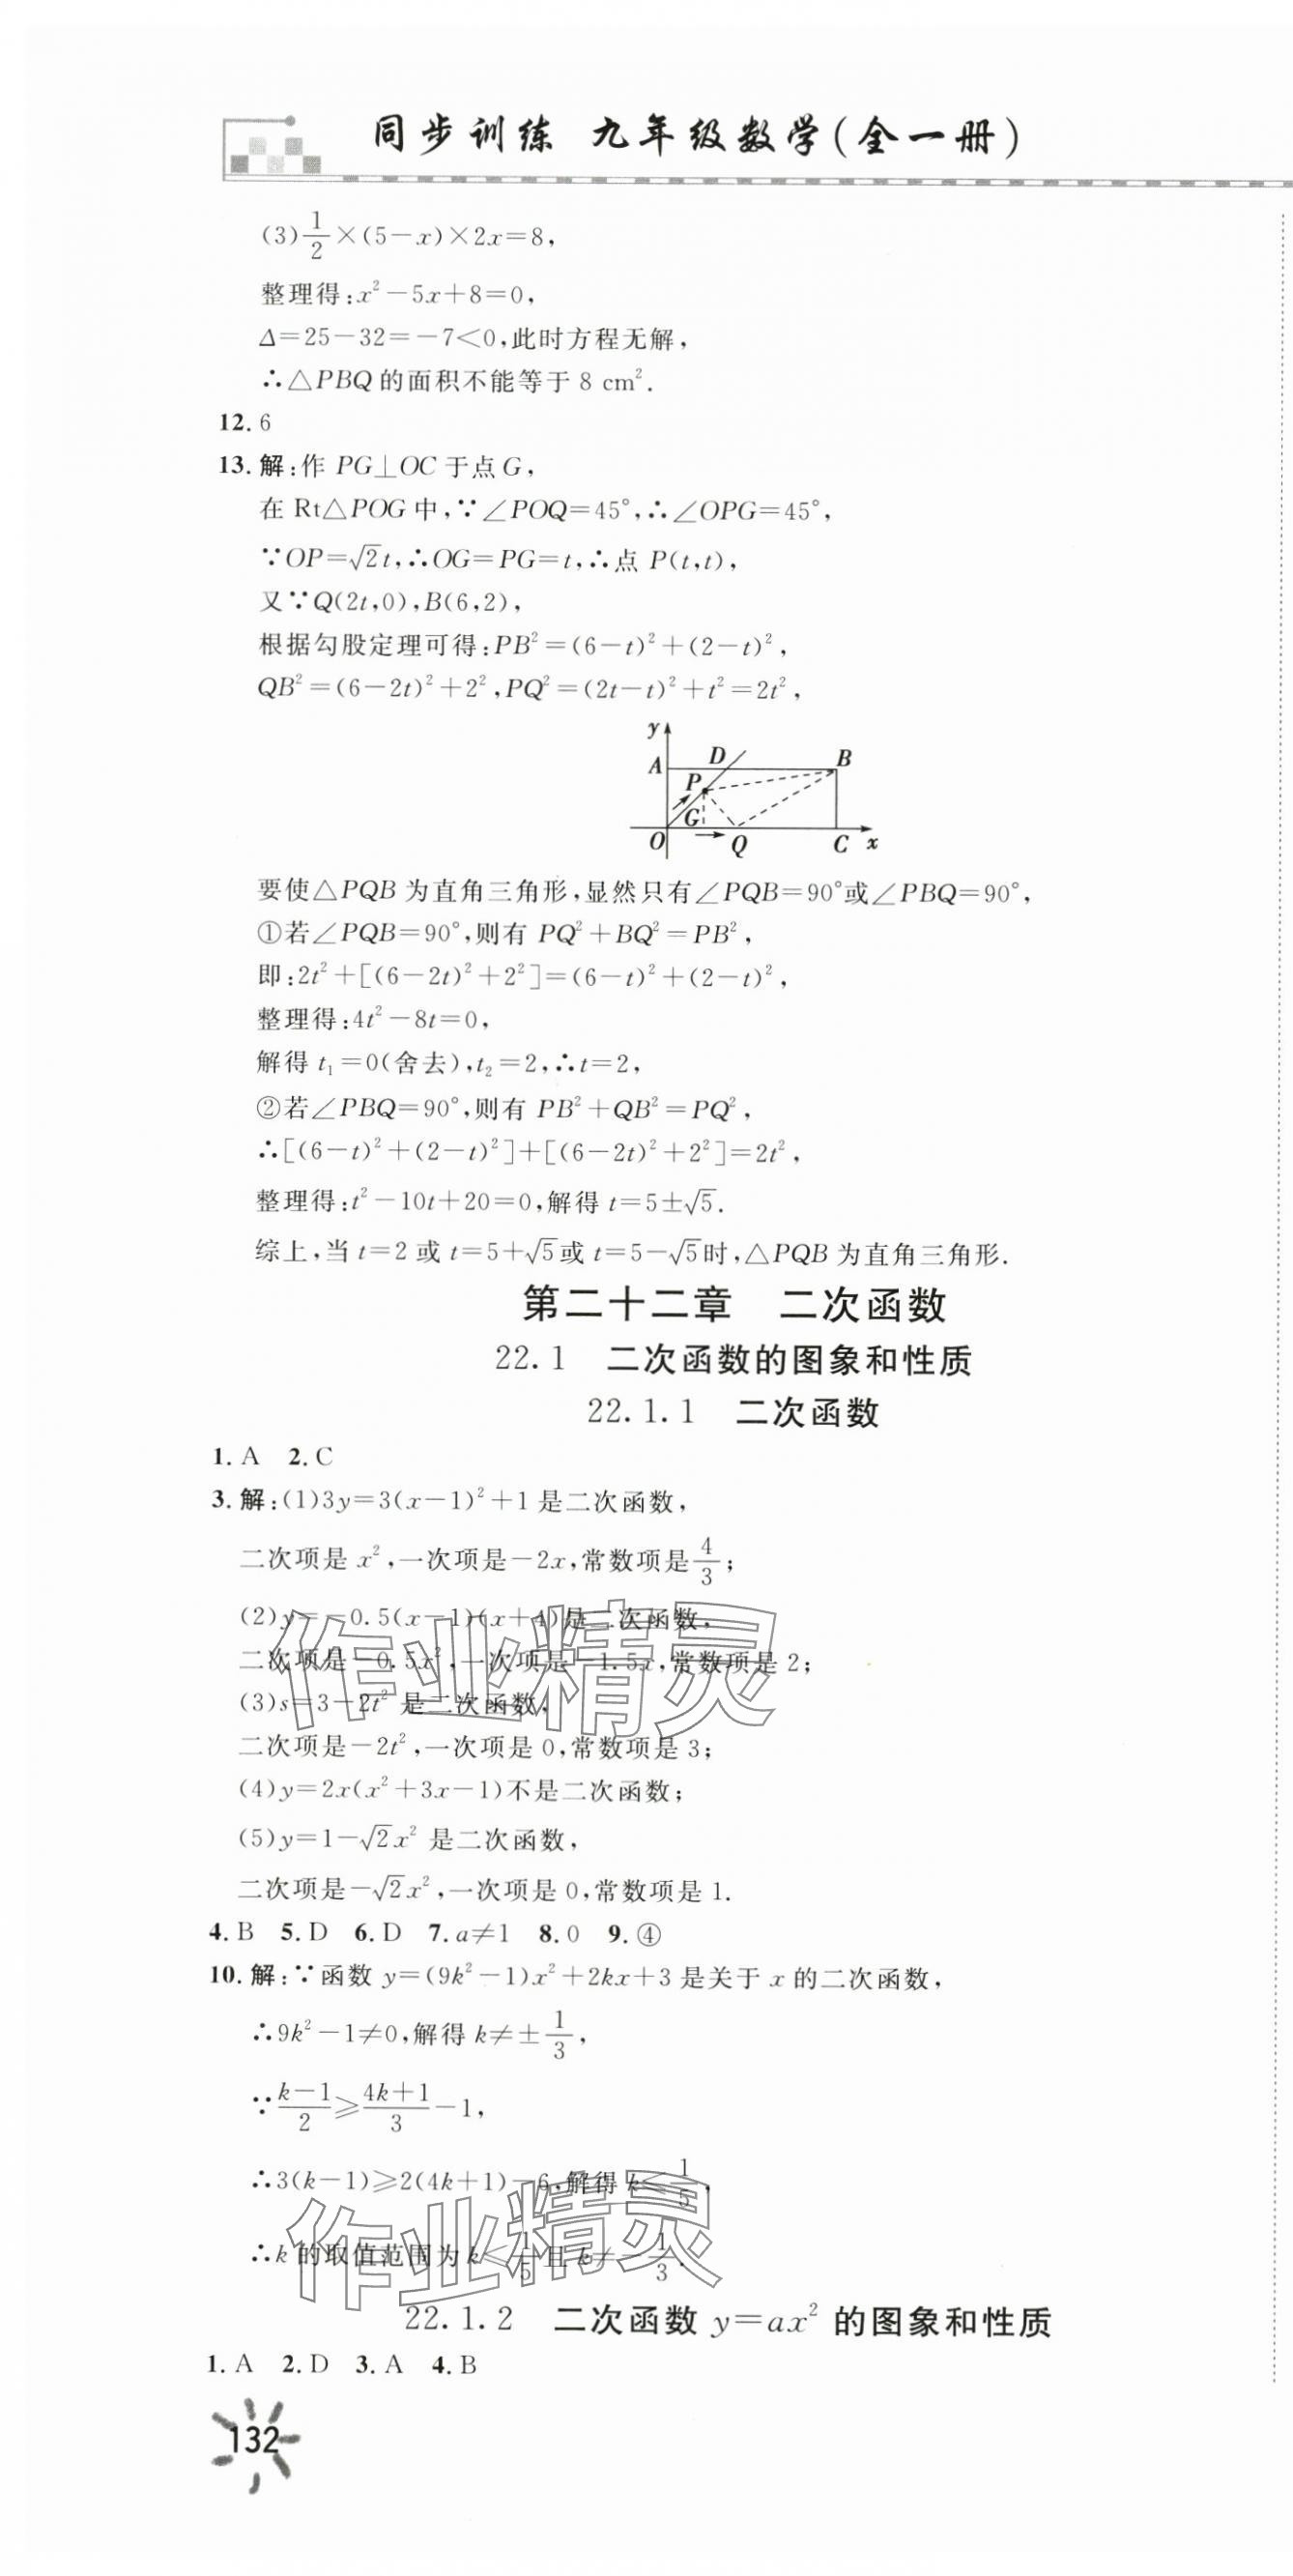 同步训练 九年级数学(全一册)
(3)$\frac{1}{2}$×(5−x)×2x=8,
整理得:x²−5x+8=0,
Δ=25−32=−7<0,此时方程无解,
∴△PBQ的面积不能等于8 cm².
12. 6
13. 解:作 PG⊥OC于点G,
在 Rt△POG中,∵∠POQ=45°,∴∠OPG=45°,
∵OP=√2t,∴OG=PG=t,∴点 P(t,t),
又∵Q(2t,0),B(6,2),
根据勾股定理可得:PB²=(6−t)²+(2−t)²,
QB²=(6−2t)²+2²,PQ²=(2t−t)²+t²=2t²,
y
A D B
P
G
O Q C x
要使△PQB为直角三角形,显然只有∠PQB=90°或∠PBQ=90°,
①若∠PQB=90°,则有 PQ²+BQ²=PB²,
即:2t²+[(6−2t)²+2²]=(6−t)²+(2−t)²,
整理得:4t²−8t=0,
解得 t₁=0(舍去),t₂=2,∴t=2,
②若∠PBQ=90°,则有 PB²+QB²=PQ²,
∴[(6−t)²+(2−t)²]+[(6−2t)²+2²]=2t²,
整理得:t²−10t+20=0,解得 t=5±√5.
综上,当 t=2或 t=5+√5或 t=5−√5时,△PQB为直角三角形.
第二十二章 二次函数
22.1 二次函数的图象和性质
22.1.1 二次函数
1. A 2. C
3. 解:(1)3y=3(x−1)²+1是二次函数,
二次项是 x²,一次项是−2x,常数项是$\frac{4}{3}$;
(2)y=−0.5(x−1)(x+4)是二次函数,
二次项是−0.5x²,一次项是−1.5x,常数项是2;
(3)s=3−2t² 是二次函数,
二次项是−2t²,一次项是0,常数项是3;
(4)y=2x(x²+3x−1)不是二次函数;
(5)y=1−√2x² 是二次函数,
二次项是−√2x²,一次项是0,常数项是1.
4. B 5. D 6. D 7. a≠1 8. 0 9. ④
10. 解:∵函数 y=(9k²−1)x²+2kx+3是关于 x的二次函数,
∴9k²−1≠0,解得 k≠±$\frac{1}{3}$,
∵$\frac{k−1}{2}$≥$\frac{4k+1}{3}$−1,
∴3(k−1)≥2(4k+1)−6,解得 k≤$\frac{1}{5}$,
∴k的取值范围为 k≤$\frac{1}{5}$且 k≠−$\frac{1}{3}$.
22.1.2 二次函数 y=ax² 的图象和性质
1. A 2. D 3. A 4. B
132
作业精灵
作业精灵